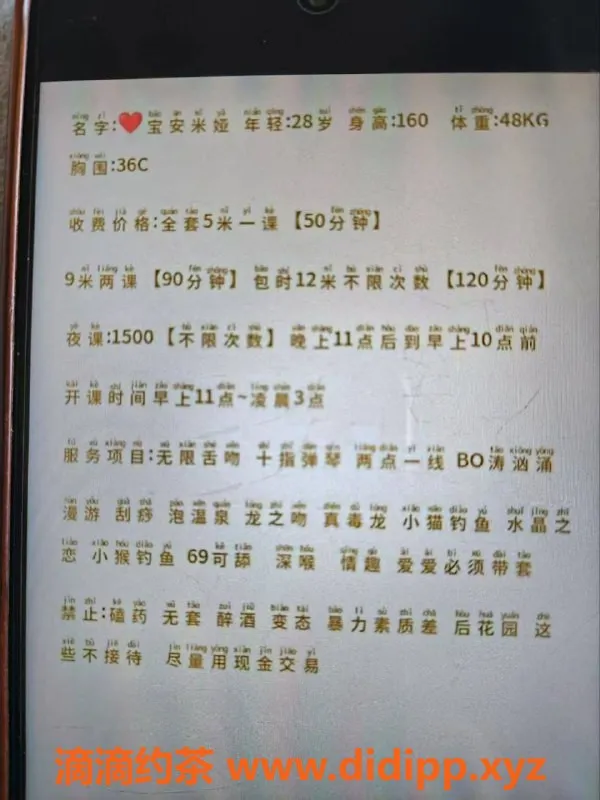 名字:❤️宝安米娅 年轻:28岁 身高:160 体重:48KG
胸围:36C
收费价格:全套5米一课【50分钟】
9米两课【90分钟】包时12米不限次数【120分钟】
夜课:1500【不限次数】晚上11点后到早上10点前
开课时间早上11点~凌晨3点
服务项目:无限舌吻 十指弹琴 两点一线 BO涛汹涌
漫游 刮痧 泡温泉 龙之吻 真毒龙 小猫钓鱼 水晶之
恋 小猴钓鱼 69可舔 深喉 情趣 爱爱必须带套
禁止:磕药 无套 醉酒 变态 暴力素质差 后花园 这
些不接待 尽量用现金交易
滴滴约茶 www.didipp.xyz